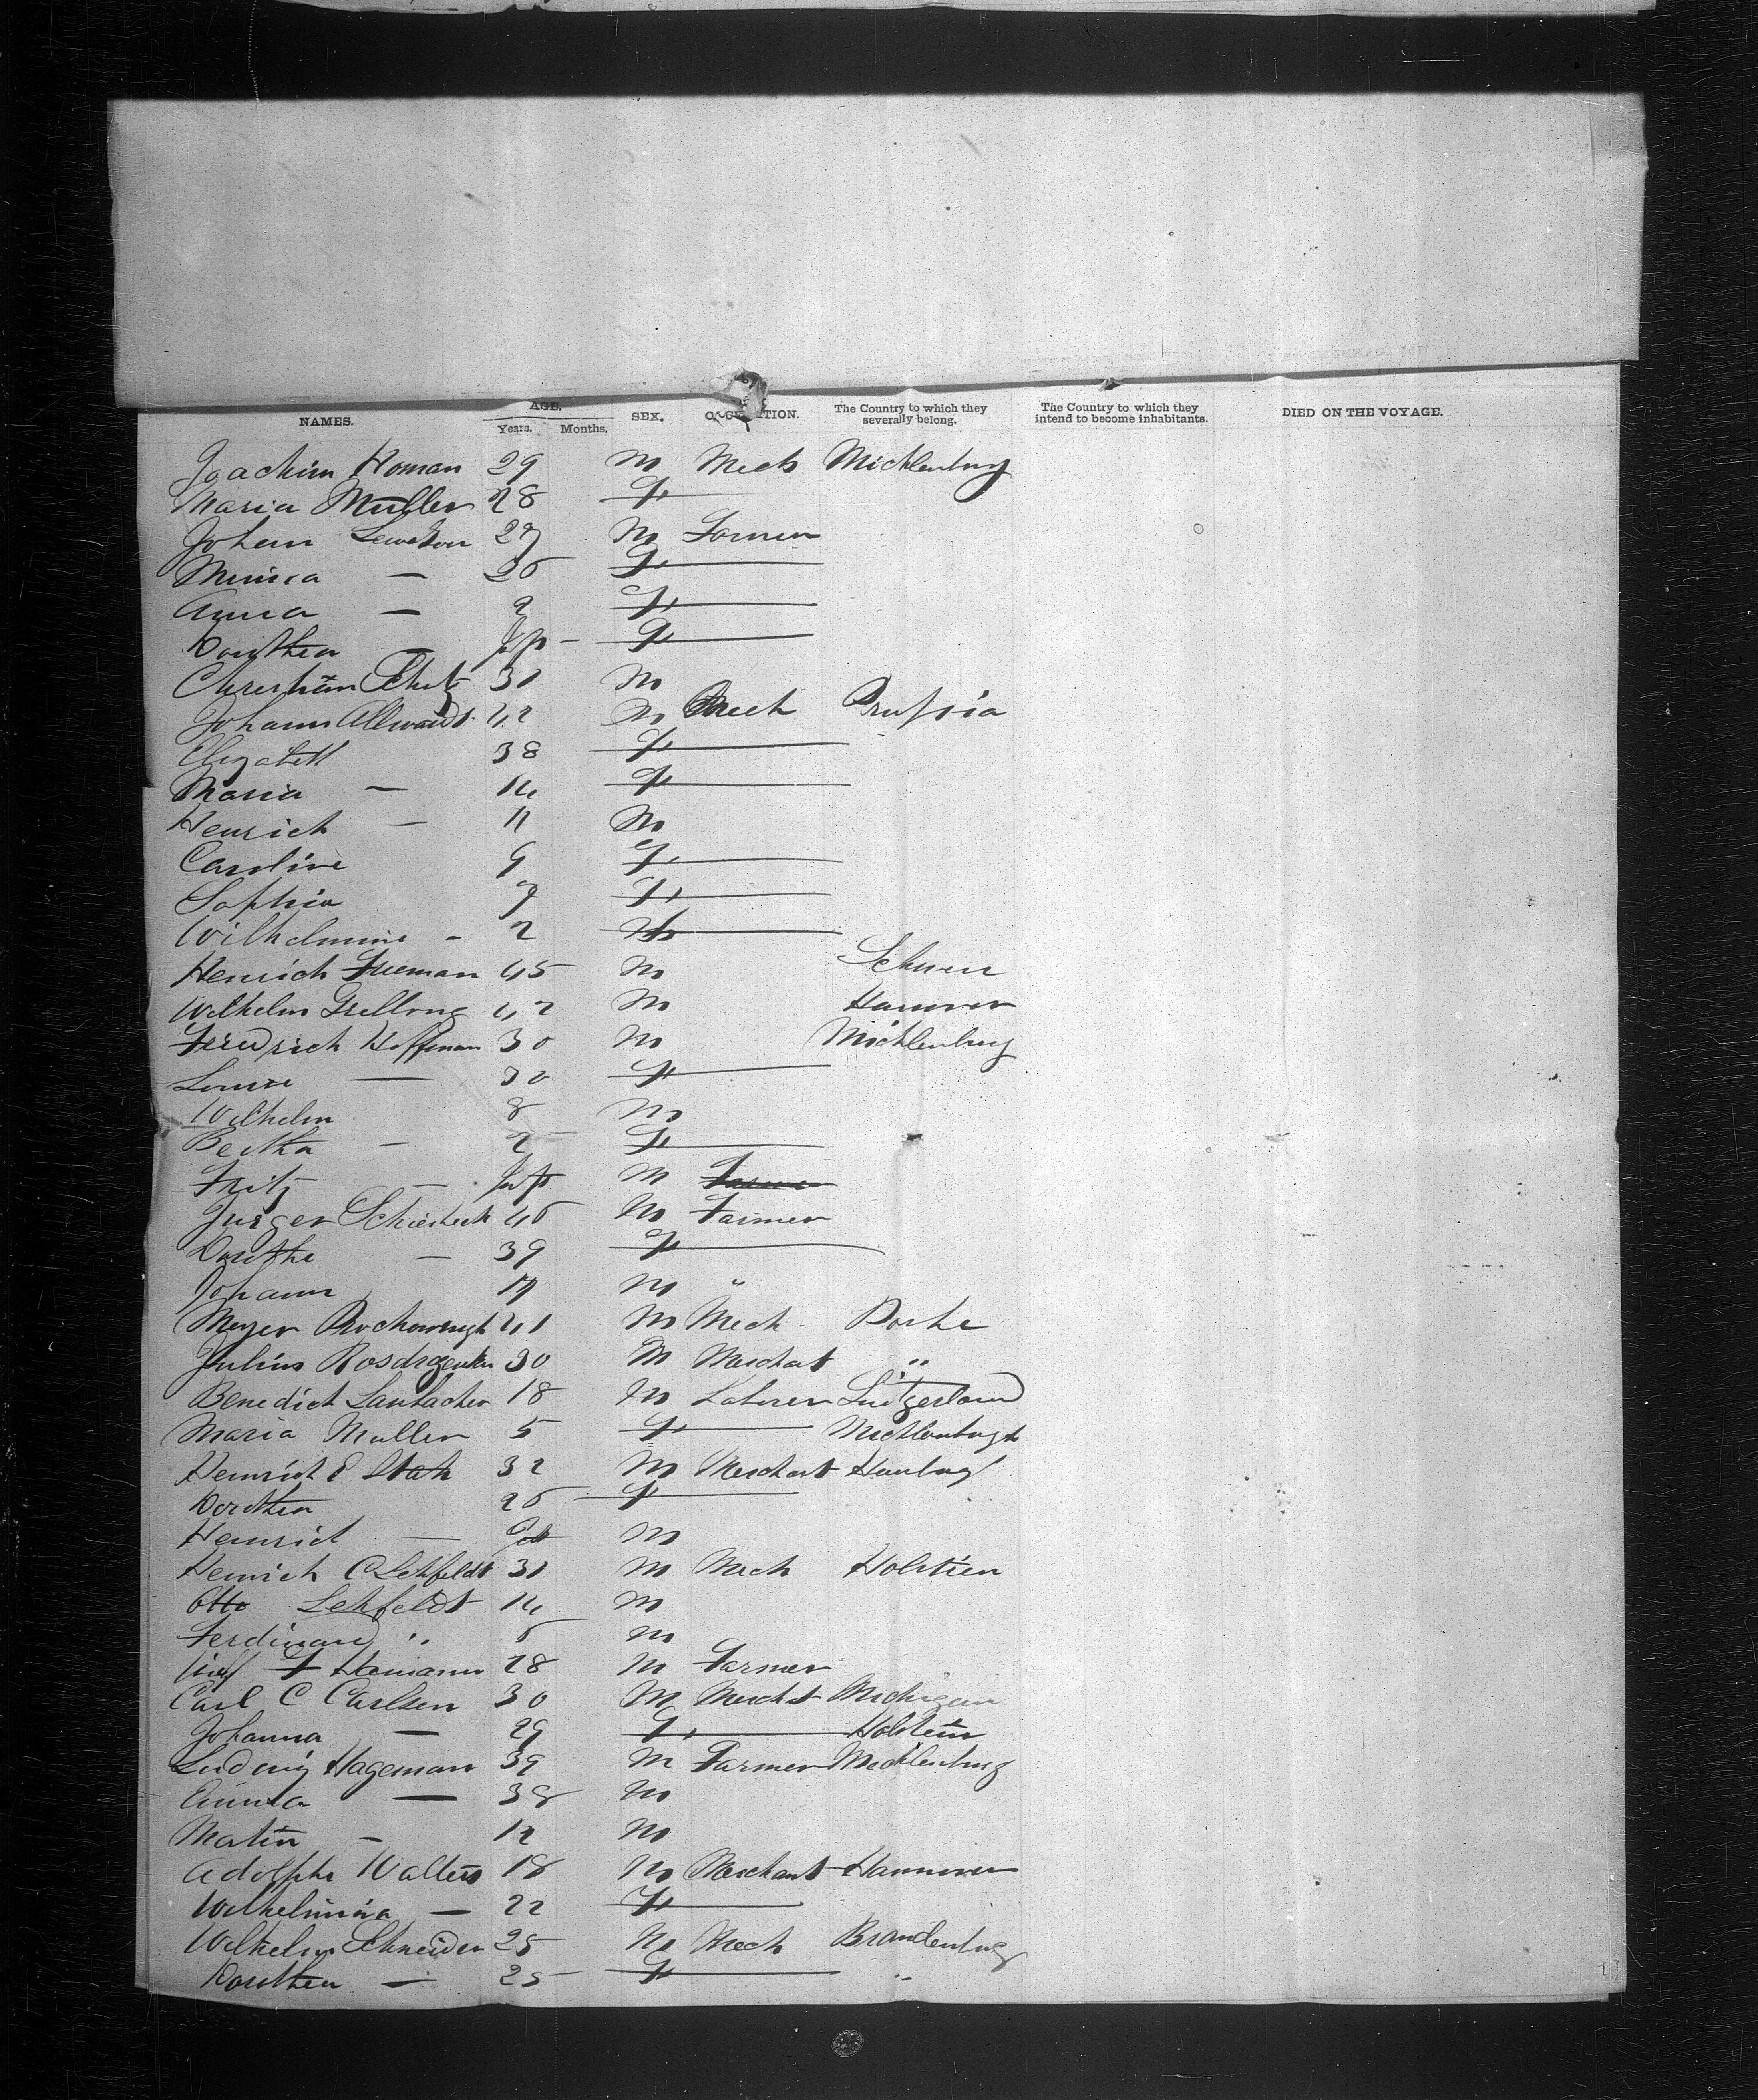 NAMES. AGE. Years. Months. SEX. The Country to which they severally belong. The Country to which they intend to become inhabitants. DIED ON THE VOYAGE.
Joachim Homan 29 M Mech Micklenburg
Maria Muller 28 F
Johann 29 M Farmer
Minna — 26 F
Anna — 2 F
Dorothea — Inf F
Christian Schutz 31 M
Johann Allwardt 42 M Mech Prussia
Elizabeth 38 F
Maria — 14 F
Henrich — 11 M
Caroline 9 F
Sophia 7 F
Wilhelmine - 2
Henrich Frieman 45 M
Wilhelm 42 M Hanover
Friedrich Hoffman 30 M Micklenburg
Louise — 30 F
Wilhelm 8 M
Bertha — 2 F
Fritz — Inf M Farmer
Jurgen 46 M Farmer
Dorothe — 39 F
Johann 17 M "
Meyer 41 M Mech
Julius 30 M Merchant "
Benedict Laubacher 18 M Laborer
Maria Muller 5 F Mecklenburgh
Heinrich E Stah 32 M Merchant Hamburg
Dorothea 26 F
Heinrich — M
Henrich C Lehfeldt 31 M Mech Holstien
Otto Lehfeldt 14 M
Ferdinand " 6 M
F Hamann 28 M Farmer
Carl C Carlsen 30 M Mercht Michigan
Johanna — 29 F Holstein
Ludwig Hageman 39 M Farmer Mecklenburg
Emma — 38 M
Martin - 12 M
Adolphe Walters 18 M Merchant Hannover
Wilhelmina — 22 F
Wilhelm Schneider 25 M Mech Brandenburg
Dorothea — 25 F "